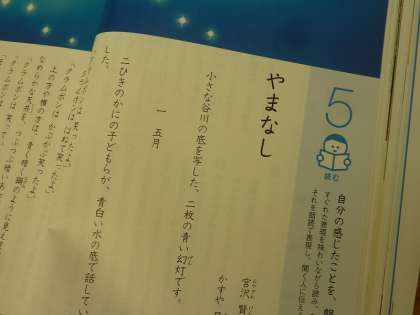 5
読む
自分の感じたことを、
すぐれた表現を味わいながら読み、
それを朗読で表現し、聞く人に伝え
やまなし
宮沢 賢
かすや
小さな谷川の底を写した、二枚の青い幻灯です。
一 五月
二ひきのかにの子どもらが、青白い水の底で話してい
した。
「クラムボンは笑ったよ。」
「クラムボンはかぷかぷ笑ったよ。」
「クラムボンははねて笑ったよ。」
上の方や横の方は、青く暗く鋼のように見え
なめらかな天井を、つぶつぶ暗いあ
「クラムボンは笑って